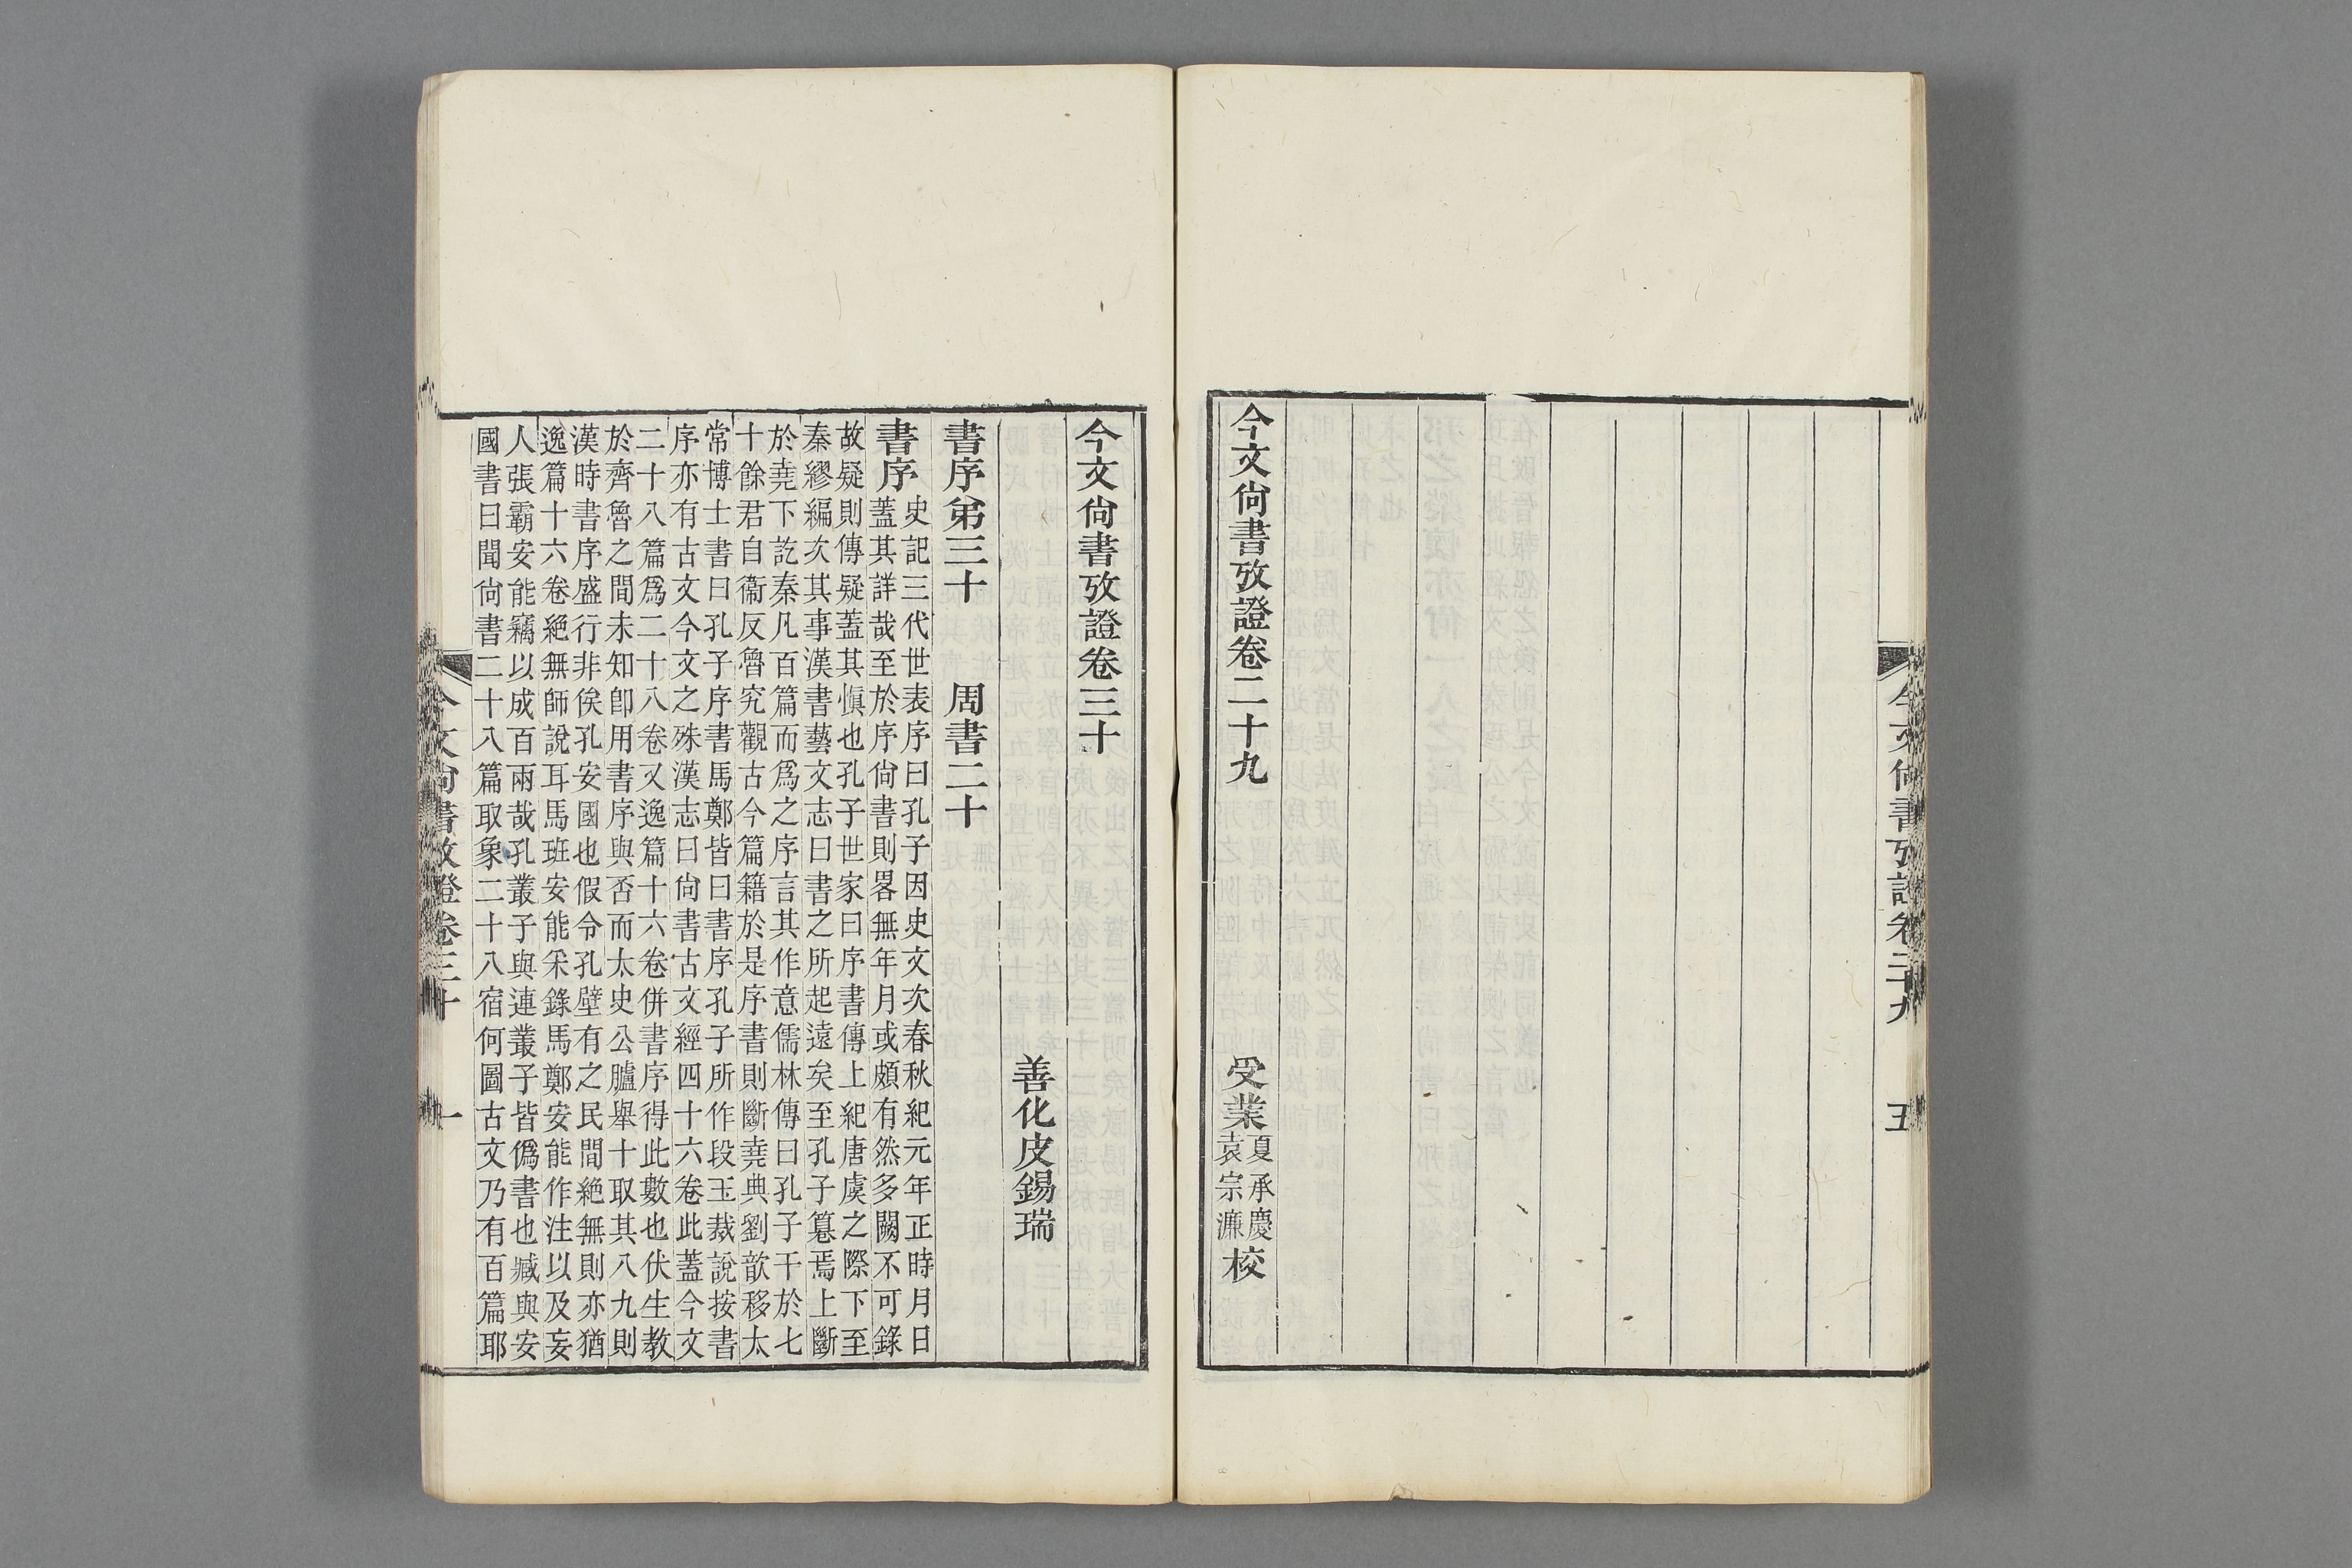 今文尚書攷證卷二十九　五
今文尚書攷證卷二十九　受業夏承慶袁宗濂校
今文尚書攷證卷三十
善化皮錫瑞
書序弟三十　周書二十
書序史記三代世表序曰孔子因史文次春秋紀元年正時月日
蓋其詳哉至於序尚書則畧無年月或頗有然多闕不可錄
故疑則傳疑蓋其愼也孔子世家曰序書傳上紀唐虞之際下至
秦繆編次其事漢書藝文志曰書之所起遠矣至孔子篹焉上斷
於堯下訖秦凡百篇而爲之序言其作意儒林傳曰孔子干於七
十餘君自衞反魯究觀古今篇籍於是序書則斷堯典劉歆移太
常博士書曰孔子序書馬鄭皆曰書序孔子所作段玉裁說按書
序亦有古文今文之殊漢志曰尚書古文經四十六卷此蓋今文
二十八篇爲二十八卷又逸篇十六卷併書序得此數也伏生教
於齊魯之間未知卽用書序與否而太史公臚舉十取其八九則
漢時書序盛行非俟孔安國也假令孔壁有之民間絕無則亦猶
逸篇十六卷絕無師說耳馬班安能采錄馬鄭安能作注以及妄
人張霸安能竊以成百兩哉孔叢子與連叢子皆僞書也臧與安
國書曰聞尚書二十八篇取象二十八宿何圖古文乃有百篇耶
今文尚書攷證卷三十　一